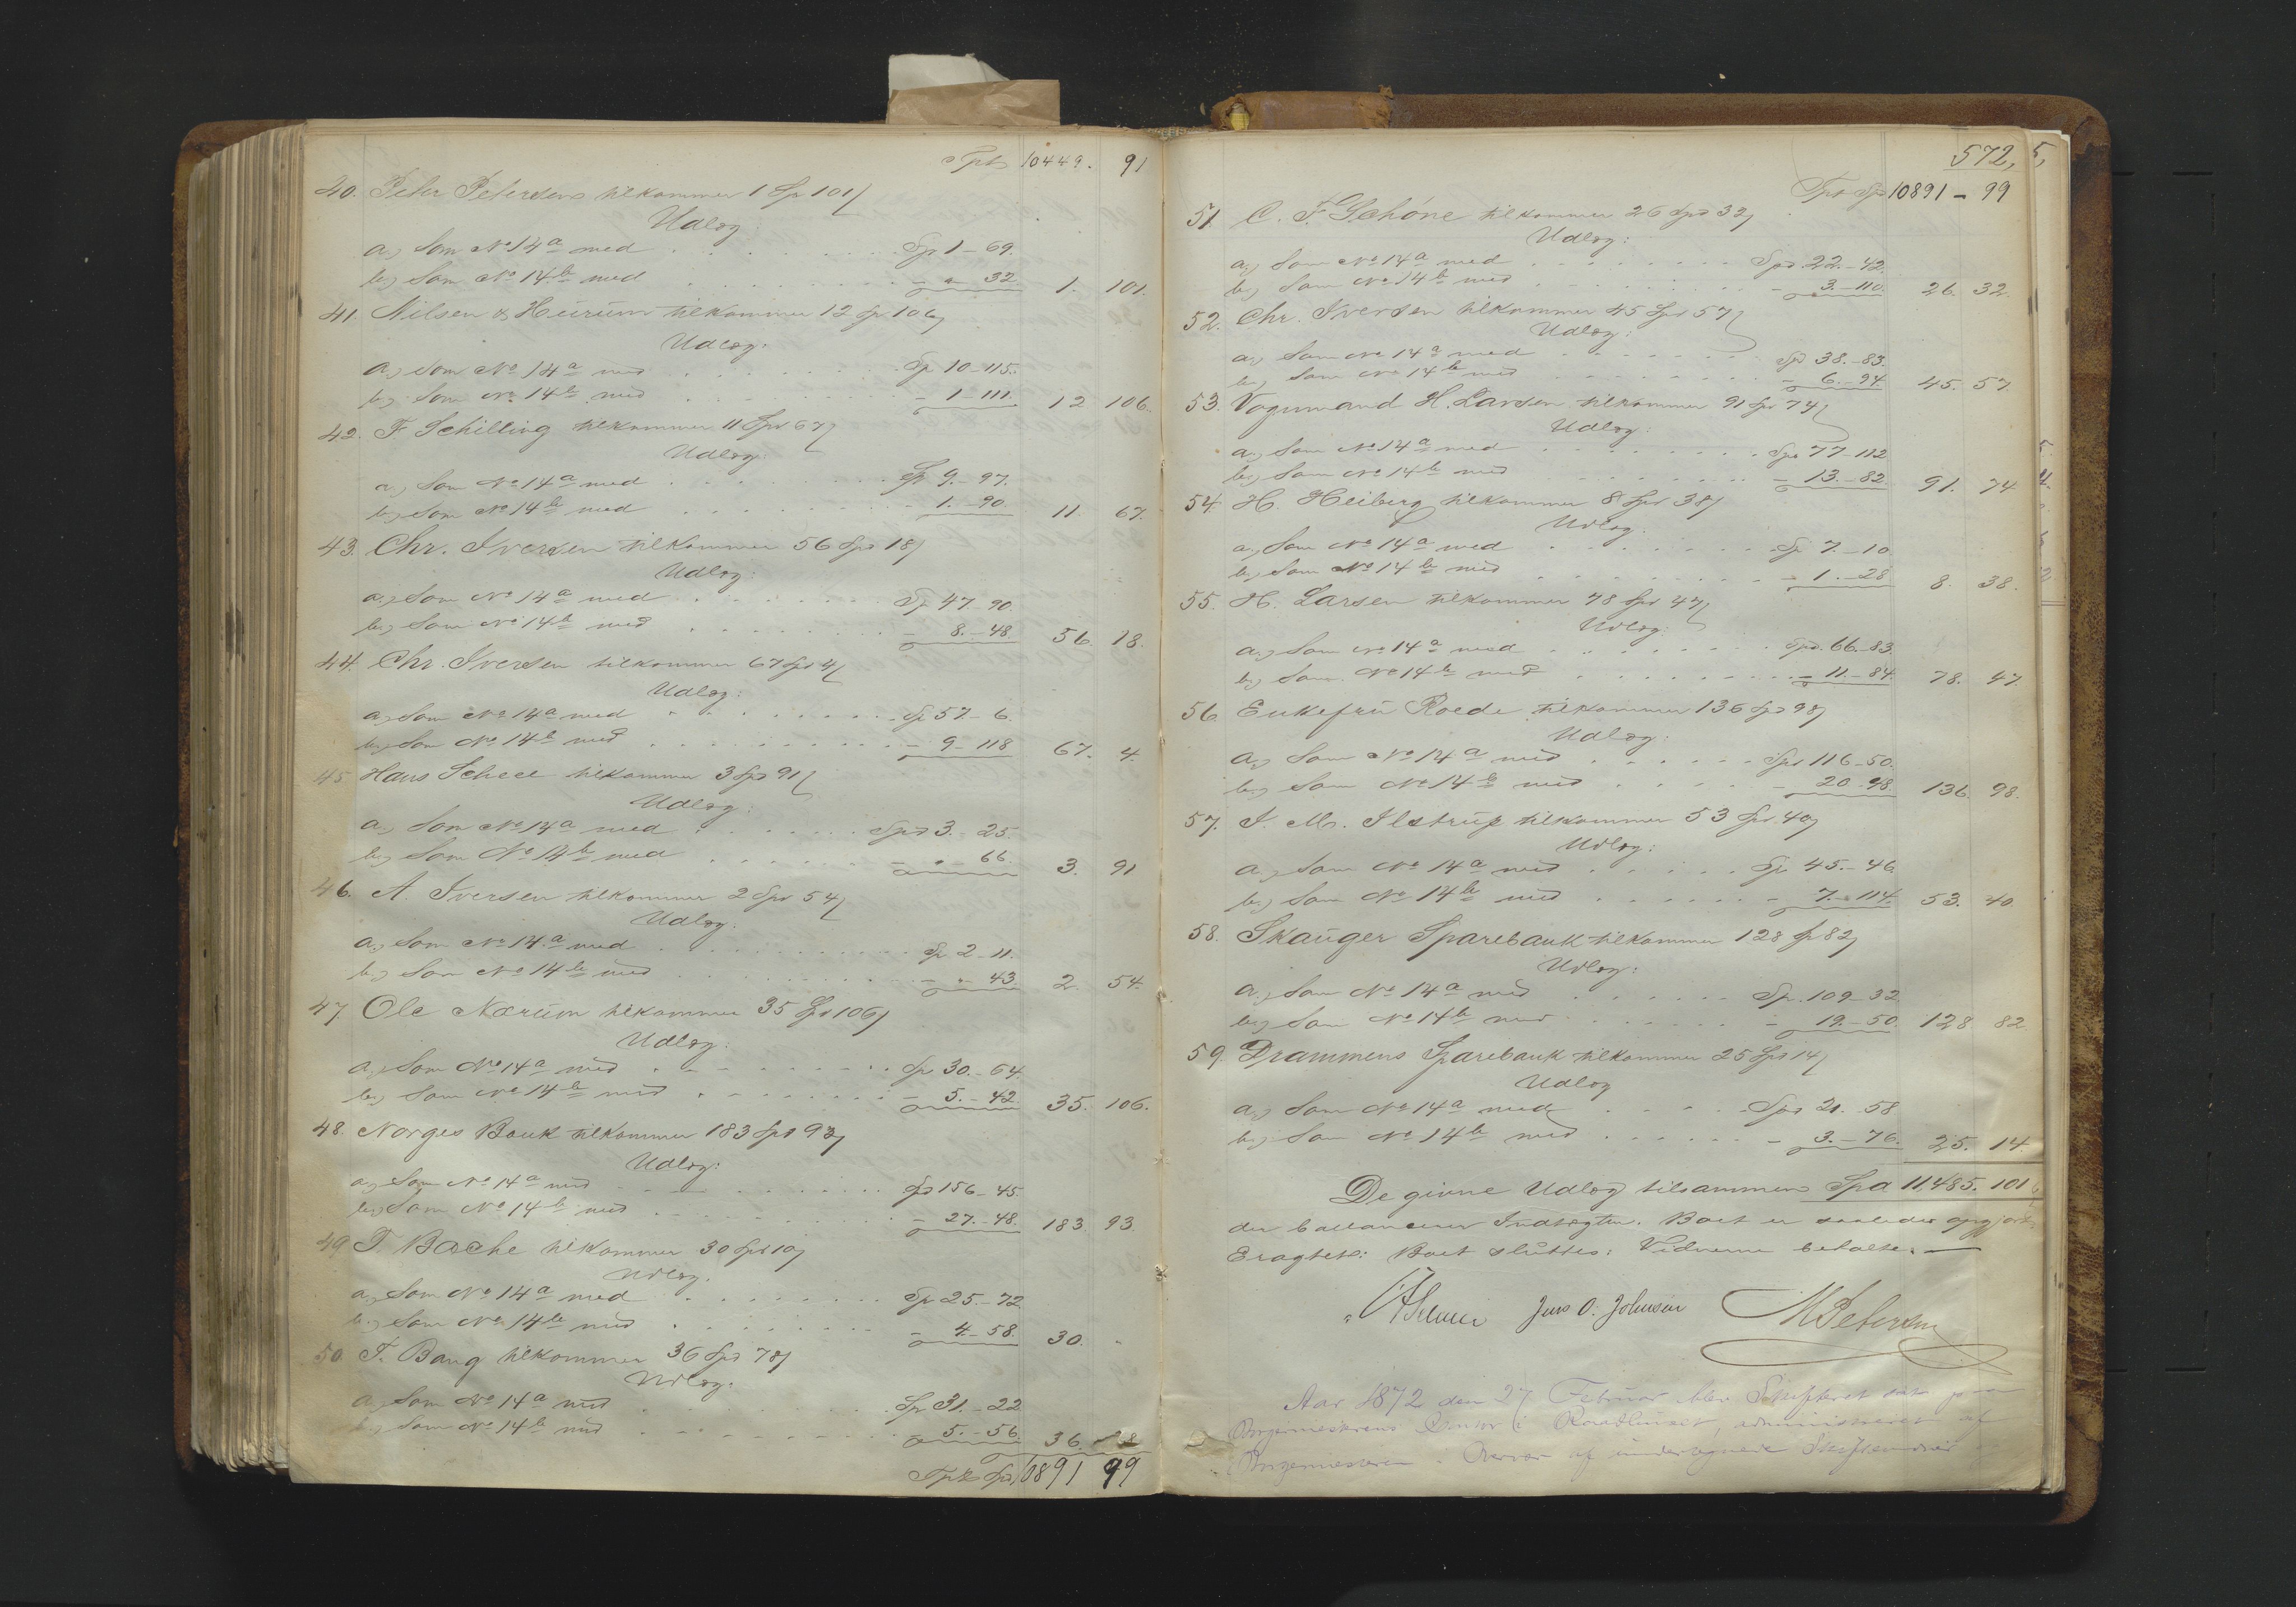 Tpt 10449. 91
40. Peter Petersens tilkommer 1 Sp 101/
Udlæg
a, Som No 14a med Sp 1-69.
b, Som No 14b med - " 32 1. 101.
41. Nilsen & Heirum tilkommer 12 Sp 106/
Udlæg:
a, Som No 14a med Sp 10-115.
b, Som No 14b med - 1-111. 12 106.
42. F Schilling tilkommer 11 Spd 67/
Udlæg
a, Som No 14a med Sp 9.-97.
b, Som No 14b med - 1.-90. 11. 67.
43. Chr. Iversen tilkommer 56 Spd 18/
Udlæg:
a, Som No 14a med Sp 47-90.
b, Som No 14b med - 8.-48. 56. 18.
44. Chr. Iversen tilkommer 67 Spd 4/
Udlæg:
a, Som No 14a med Sp 57-6.
b, Som No 14b med - 9-118 67. 4.
45 Hans Scheel tilkommer 3 Spd 91/
Udlæg:
a, Som No 14a med Spd 3.-25.
b, Som No 14b med - "-66. 3. 91
46. A. Iversen tilkommer 2 Spd 54/
Udlæg:
a, Som No 14a med Sp 2-11.
b, Som No 14b med - "-43. 2. 54.
47 Ole Nærum tilkommer 35 Spd 106/
Udlæg:
a, Som No 14a med Sp 30.-64.
b, Som No 14b med - 5.-42. 35. 106.
48. Norges Bank tilkommer 183 Spd 93/
Udlæg:
a, Som No 14a med Spd 156-45.
b, Som No 14b med - 27.-48. 183. 93.
49 T. Bache tilkommer 30 Spd 10/
Udlæg.
a, Som No 14a med Sp 25.-72
b, Som No 14b med - 4.-58. 30. -
50. T. Bang tilkommer 36 Spd 78/
Udlæg:
a, Som No 14a med Sp 31.-22
b, Som No 14b med - 5.-56. 36. 78
Tpt Spd 10891 99
572,
Tpt Sp 10891 - 99
51. C. F. Schöne tilkommer 26 Spd 32/
Udlæg:
a, Som No 14a med Spd 22.-42.
b, Som No 14b med - 3.-110. 26. 32.
52. Chr. Iversen tilkommer 45 Spd 57/
Udlæg:
a, Som No 14a med Spd 38.-83.
b, Som No 14b med - 6.-94. 45. 57.
53. Vognmand H. Larsen tilkommer 91 Spd 74/
Udlæg:
a, Som No 14a med Spd 77-112
b, Som No 14b med - 13.-82 91. 74
54. H. Heiberg tilkommer 8 Spd 38/
Udlæg.
a, Som No 14a med Sp 7.-10
b, Som No 14b med - 1.-28 8. 38.
55. H. Larsen tilkommer 78 Spd 47/
Udlæg:
a, Som No 14a med Spd. 66.-83.
b, Som No 14b med - 11.-84. 78. 47.
56 Enkefru Roede tilkommer 136 Spd 98/
Udlæg:
a, Som No 14a med Spd 116-50.
b, Som No 14b med - 20.48. 136. 98.
57. I. M. Ilstrup tilkommer 53 Spd 40/
Udlæg:
a, Som No 14a med Sp 45.-46
b, Som No 14b med - 7.-114. 53. 40.
58. Skauger Sparebank tilkommer 128 Sp 82/
Udlæg:
a, Som No 14a med Sp. 109-32
b, Som No 14b med - 19.-50. 128 82.
59. Drammens Sparebank tilkommer 25 Spd 14/
Udlæg
a, Som No 14a med Spd 21.-58
b, Som No 14b med - 3.-76. 25. 14.
De givne Udlæg tilsammen Spd 11,485. 101
der ballancerer Indtægten. Boet er saaledes opgjort.
Eragtet: Boet sluttes: Vidnerne betalte.
Jens O. Johnsen M Petersen
Aar 1872 den 27 Februar blev Skifteret sat paa
Borgermesterens Contor i Raadhuset, administreret af
Borgermesteren i Nærvær af undertegnede Skiftevidner